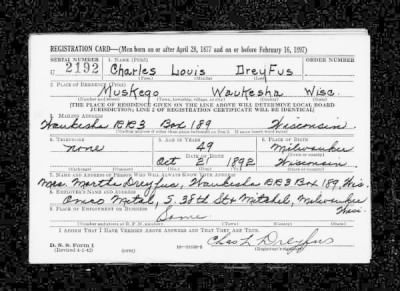 REGISTRATION CARD—(Men born on or after April 28, 1877 and on or before February 16, 1897)
SERIAL NUMBER 1. NAME (Print) ORDER NUMBER
U 2192 Charles Louis Dreyfus
(First) (Middle) (Last)
2. PLACE OF RESIDENCE (Print)
Muskego Waukesha Wisc.
(Number and street) (Town, township, village, or city) (County) (State)
[THE PLACE OF RESIDENCE GIVEN ON THE LINE ABOVE WILL DETERMINE LOCAL BOARD
JURISDICTION; LINE 2 OF REGISTRATION CERTIFICATE WILL BE IDENTICAL]
3. MAILING ADDRESS
Waukesha RR3 Box 189 Wisconsin
[Mailing address if other than place indicated on line 2. If same insert word same]
4. TELEPHONE 5. AGE IN YEARS 6. PLACE OF BIRTH
none 49 Milwaukee
DATE OF BIRTH (Town or county)
Oct 21 1892 Wisconsin
(Exchange) (Number) (Mo.) (Day) (Yr.) (State or country)
7. NAME AND ADDRESS OF PERSON WHO WILL ALWAYS KNOW YOUR ADDRESS
Mrs. Myrtle Dreyfus, Waukesha RR3 Box 189, Wis.
8. EMPLOYER'S NAME AND ADDRESS
S. 38th St Mitchel, Milwaukee
Wisc.
9. PLACE OF EMPLOYMENT OR BUSINESS
Same
(Number and street or R. F. D. number) (Town) (County) (State)
I AFFIRM THAT I HAVE VERIFIED ABOVE ANSWERS AND THAT THEY ARE TRUE.
D. S. S. Form 1
(Revised 4-1-42) (over) Chas L Dreyfus
(Registrant's signature)